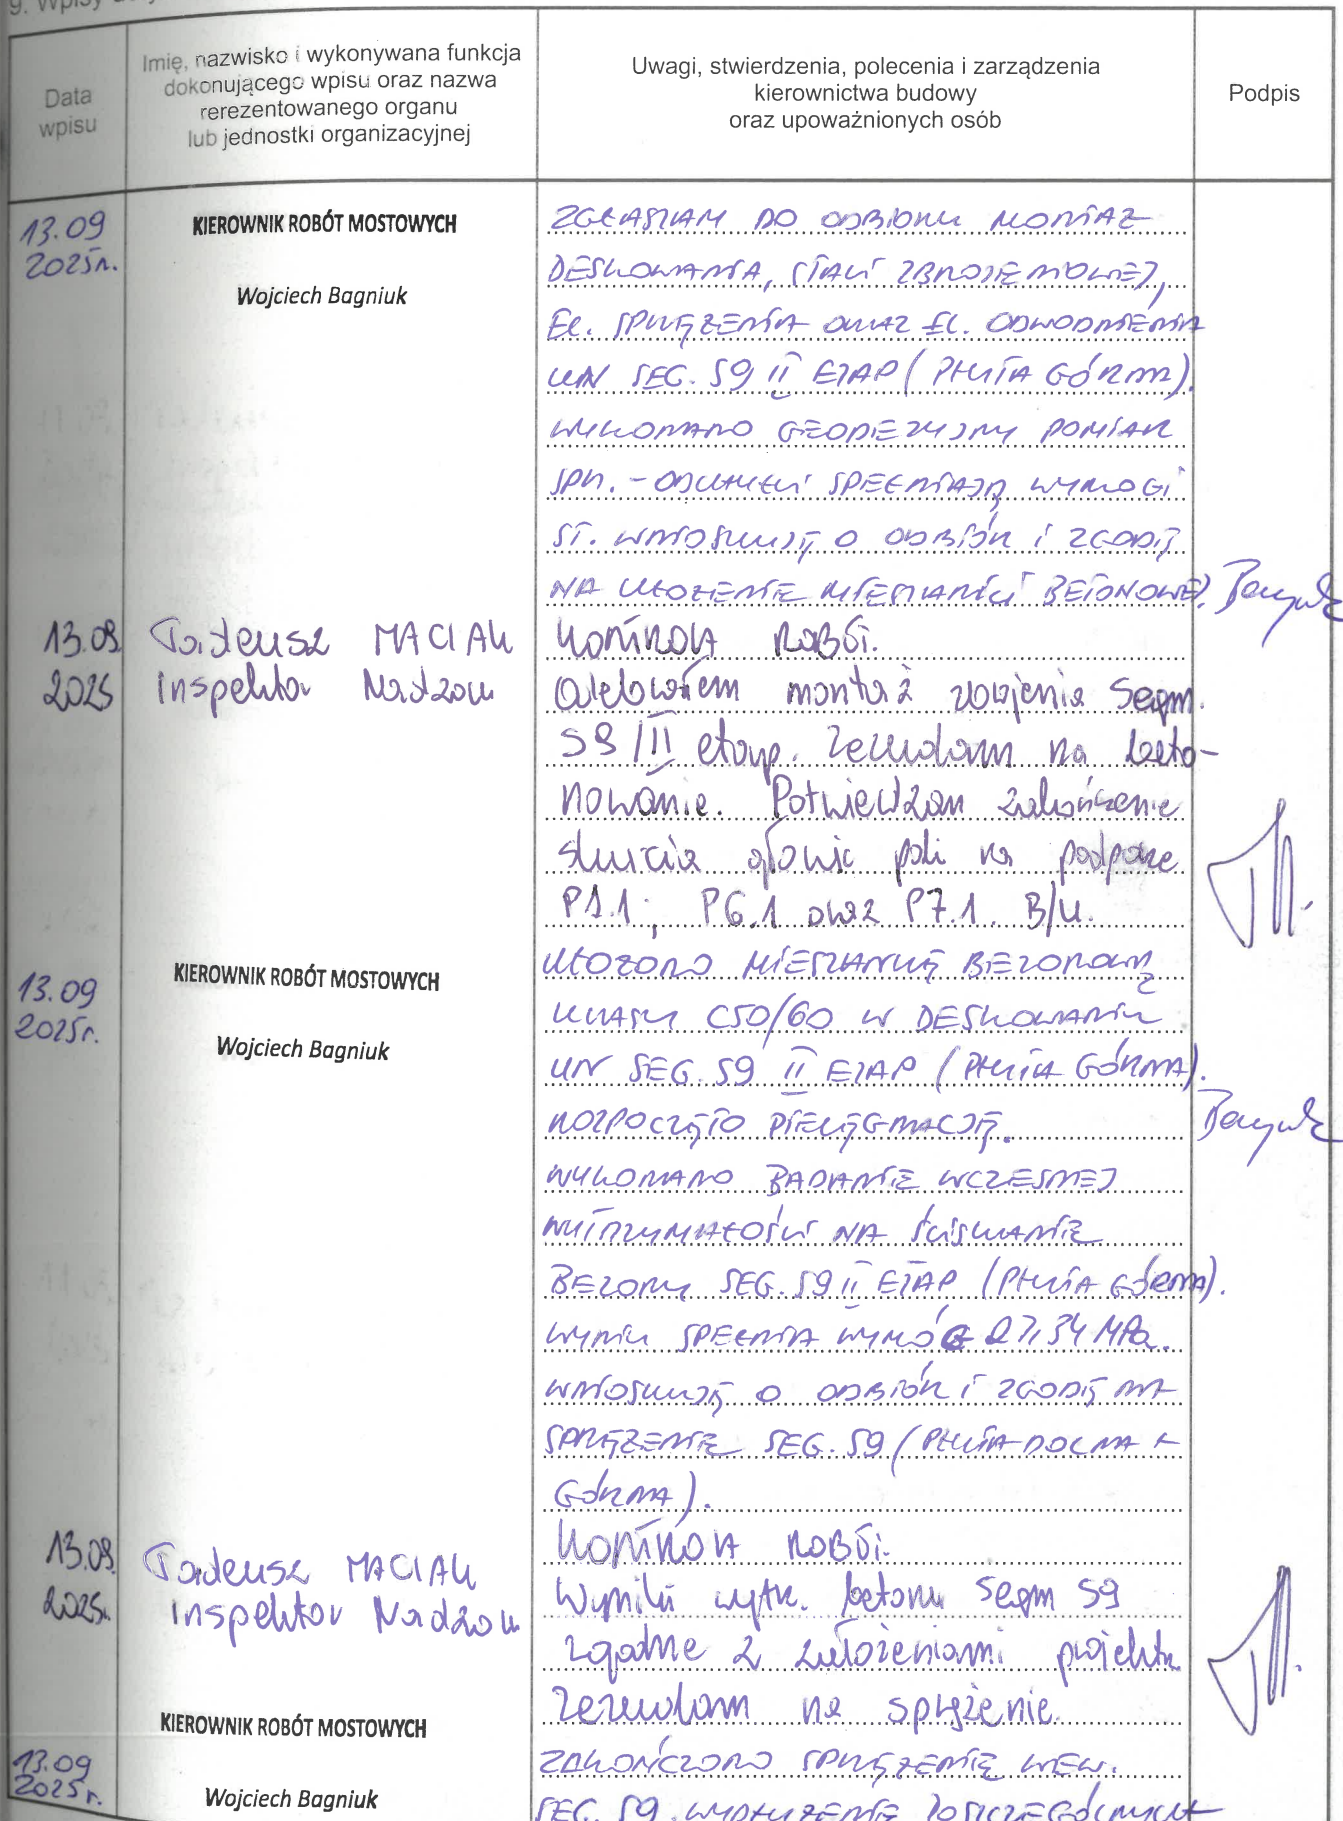 9. Wpisy
Data
wpisu
Imię, nazwisko i wykonywana funkcja
dokonującego wpisu oraz nazwa
rerezentowanego organu
lub jednostki organizacyjnej
Uwagi, stwierdzenia, polecenia i zarządzenia
kierownictwa budowy
oraz upoważnionych osób
Podpis
13.09
2025r.
KIEROWNIK ROBÓT MOSTOWYCH
Wojciech Bagniuk
ZGŁASZAM DO ODBIORU MONTAŻ
DESKOWANIA, STALI ZBROJENIOWEJ,
EL. SPRĘŻENIA ORAZ EL. ODWODNIENIA
UN SEG. 59 II ETAP (PŁYTA GÓRNA).
WYKONANO GEODEZYJNY POMIAR
SPR. - ODCHYŁKI SPEŁNIAJĄ WYMOGI
ST. WNIOSKUJĘ O ODBIÓR I ZGODĘ
NA UŁOŻENIE MIESZANKI BETONOWEJ.
13.09
2025
Tadeusz MACIAK
Inspektor Nadzoru
KONTROLA ROBÓT.
Odebrałem montaż zbrojenia segm.
59/II etap. Zezwalam na beto-
nowanie. Potwierdzam zakończenie
skucia głowic pali na podporze
P1.1, P6.1 oraz P7.1. B/U.
13.09
2025r.
KIEROWNIK ROBÓT MOSTOWYCH
Wojciech Bagniuk
UŁOŻONO MIESZANKĘ BETONOWĄ
KLASY C50/60 W DESKOWANIU
UN SEG. 59 II ETAP (PŁYTA GÓRNA).
ROZPOCZĘTO PIELĘGNACJĘ.
WYKONANO BADANIE WCZESNEJ
WYTRZYMAŁOŚCI NA ŚCISKANIE
BETONU SEG. 59 II ETAP (PŁYTA GÓRNA).
WYNIK SPEŁNIA WYMÓG 27,34 MPa.
WNIOSKUJĘ O ODBIÓR I ZGODĘ NA
SPRĘŻENIE SEG. 59 (PŁYTA DOLNA +
GÓRNA).
13.09
2025r.
Tadeusz MACIAK
Inspektor Nadzoru
KONTROLA ROBÓT.
Wyniki wytk. betonu segm 59
zgodne z założeniami projektu
Zezwalam na sprężenie.
13.09
2025r.
KIEROWNIK ROBÓT MOSTOWYCH
Wojciech Bagniuk
ZAKOŃCZONO SPRĘŻENIE WEW.
SEG. 59. WYDŁUŻENIE POSZCZEGÓLNYCH